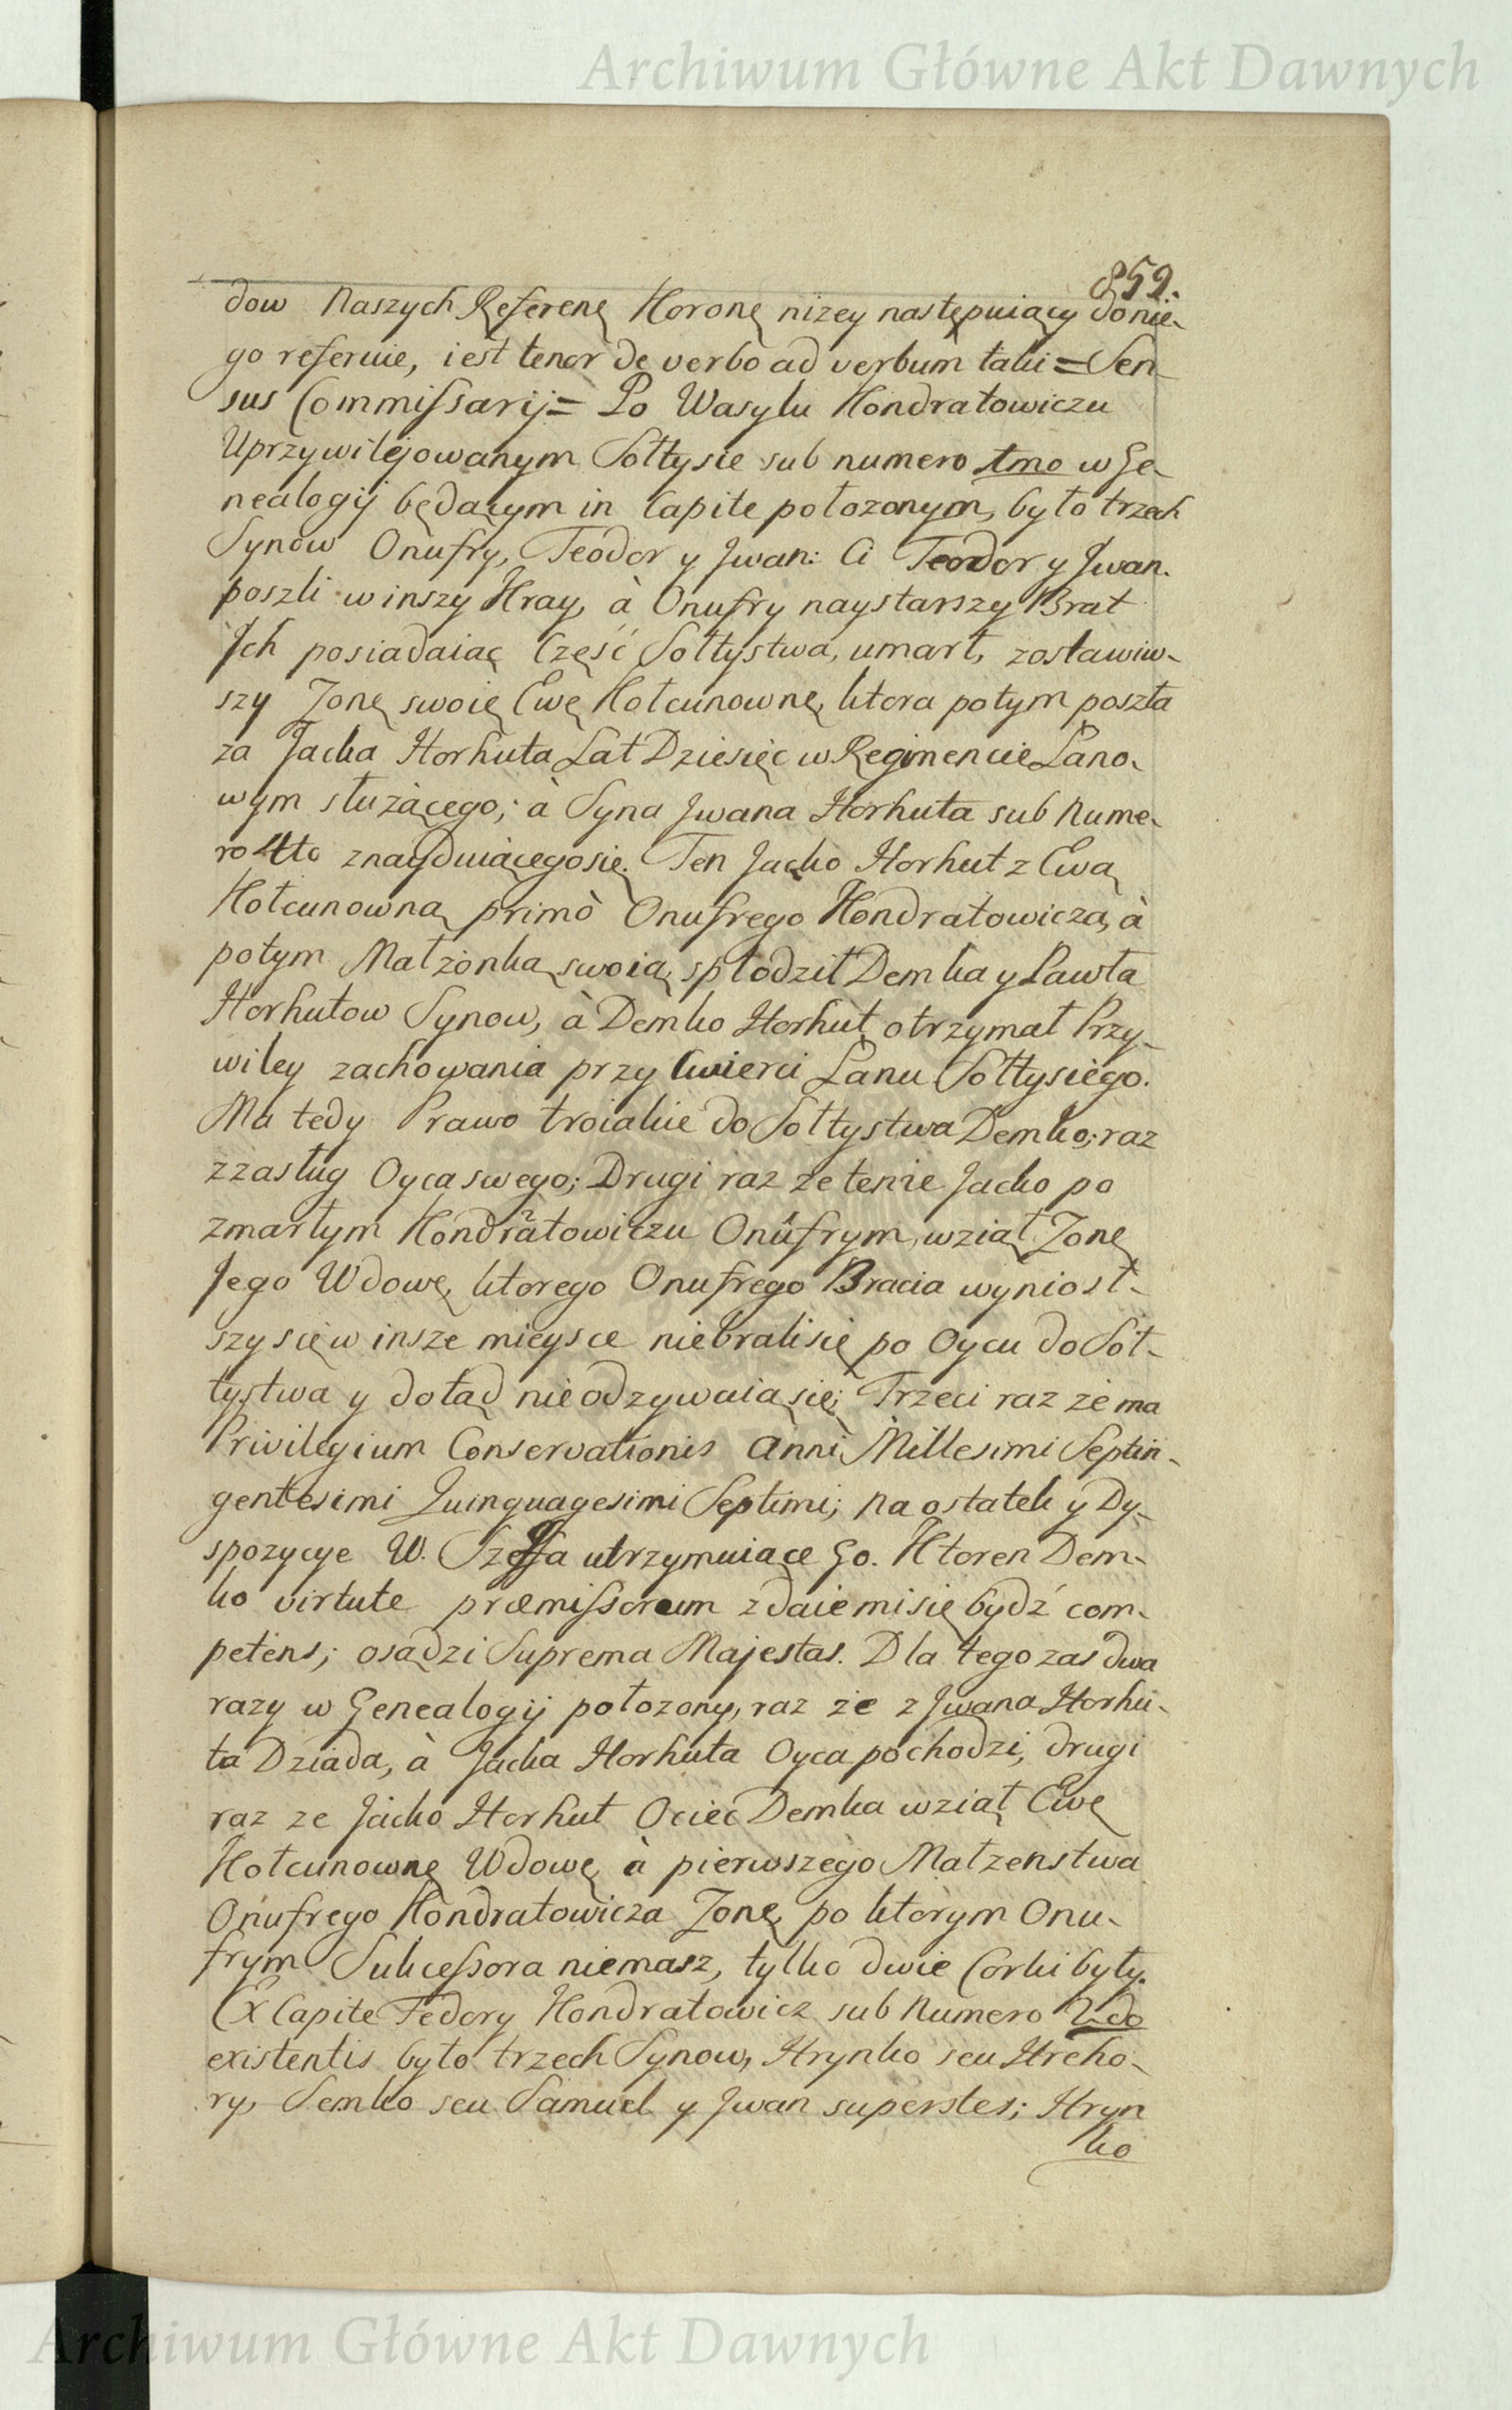 Archiwum Główne Akt Dawnych
859.
dow Naszych Referenę Koronę nizey następuiący do nie-
go referuie, iest tenor de verbo ad verbum taki = Sen-
sus Commissarij = Po Wasylu Kondratowiczu
Uprzywilejowanym Sołtysie sub numero 1mo w Ge-
nealogij będącym in Capite położonym, było trzech
Synów Onufry, Teodor y Jwan: Ci Teodor y Jwan.
poszli w inszy Kray, à Onufry naystarszy Brat
Jch posiadaiąc Część Sołtystwa, umarł, zostawiw-
szy Zonę swoię Ewę Kołcunownę, ktora potym poszła
za Jacka Horhuta Lat Dziesięć w Regimencie Łano-
wym służącego; à Syna Jwana Horhuta sub Nume-
ro 4to znayduiącego się. Ten Jacko Horhut z Ewą
Kołcunowną primò Onufrego Kondratowicza, à
potym Małżonką swoią, spłodził Demka y Pawła
Horhutow Synow, à Demko Horhut otrzymał Przy-
wiley zachowania przy Cwierci Łanu Sołtysiego.
Ma tedy Prawo troiakie do Sołtystwa Demko; raz
z zasług Oyca swego; Drugi raz że tenże Jacko po
zmarłym Kondratowiczu Onufrym, wziął Zonę
Jego Wdowę, ktorego Onufrego Bracia wyniosł-
szy się w insze mieysce niebrali się po Oycu do Soł-
tystwa y dotąd nie odzywaią się; Trzeci raz że ma
Privilegium Conservationis Anni Millesimi Septin-
gentesimi Quinquagesimi Septimi; na ostatek y Dy-
spozycye W. Szeffa utrzymuiące Go. Ktoren Dem-
ko virtute præmissorum zdaie mi się bydź com-
petens; osądzi Suprema Majestas. Dla tego zas dwa
razy w Genealogij położony, raz że z Jwana Horhu-
ta Dziada, à Jacka Horhuta Oyca pochodzi, drugi
raz ze Jacko Horhut Ociec Demka wziął Ewę
Kołcunownę Wdowę, à pierwszego Małzenstwa
Onufrego Kondratowicza Zonę, po ktorym Onu-
frym Sukcessora niemasz, tylko dwie Corki były.
Ex Capite Fedory Kondratowicz sub Numero 2do
existentis było trzech Synow, Hrynko seu Hreho-
ry, Semko seu Samuel y Jwan superstes; Hryn
ko
Archiwum Główne Akt Dawnych